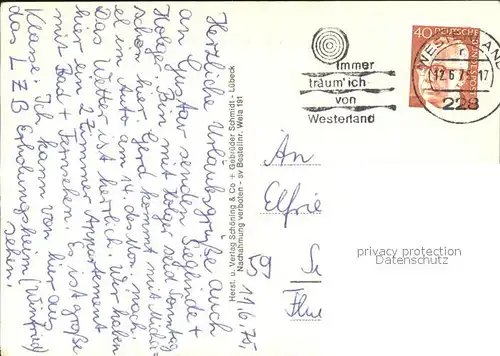 Herzliche Urlaubsgrüße, auch
an Gustav senden Sieglinde +
Holger. Bin mit Holger seit Sonntag
schon hier, Gerd kommt mit Micha-
el im Auto am 14. des Mon. nach.
Das Wetter ist herrlich. Wir haben
hier ein 2 Zimmer Appartement
mit Bad + Fernsehen. Es ist große
Klasse. Ich kann von hier aus
das LZB Erholungsheim (Winfried)
sehen.
Herst. u. Verlag Schöning & Co + Gebrüder Schmidt - Lübeck
Nachahmung verboten - sv Bestellnr. Wela 191
11/6.75,-
Immer
träum' ich
von
Westerland
40 DEUTSCHE BUNDESPOST
WESTERLAND
12.6.75-17
228
An
Elfrie
59
Flu
privacy protection
Datenschutz